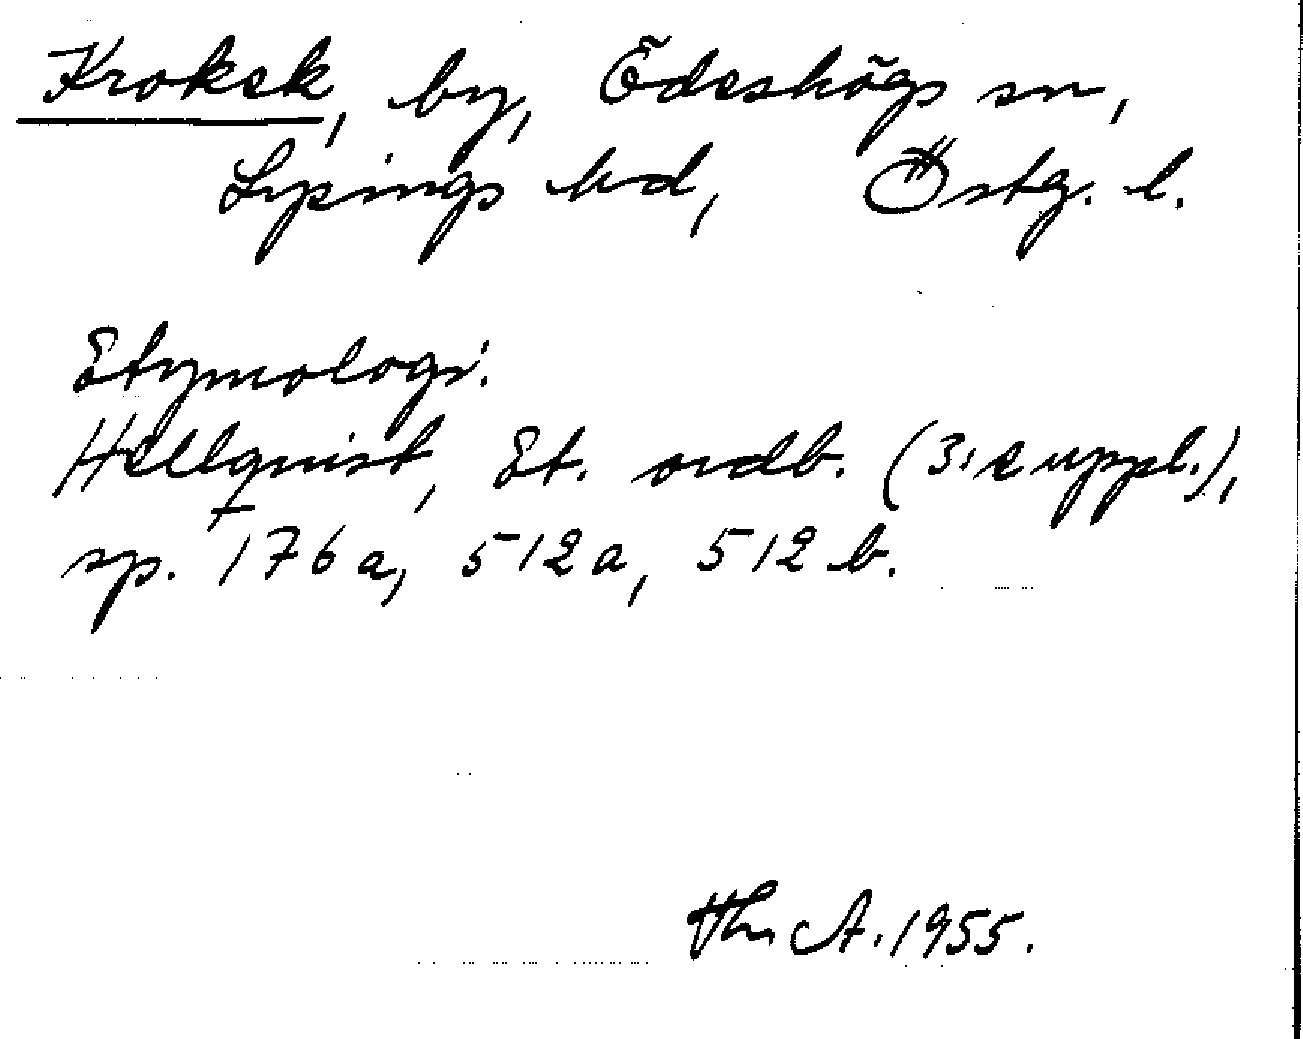 Kroksk, by, Ödeshögs sn,
Lysings hd, Östg. l.
Etymologi:
Hellquist, Et. ordb. (3:e uppl.),
sp. 176 a, 512 a, 512 b.
Th. A. 1955.